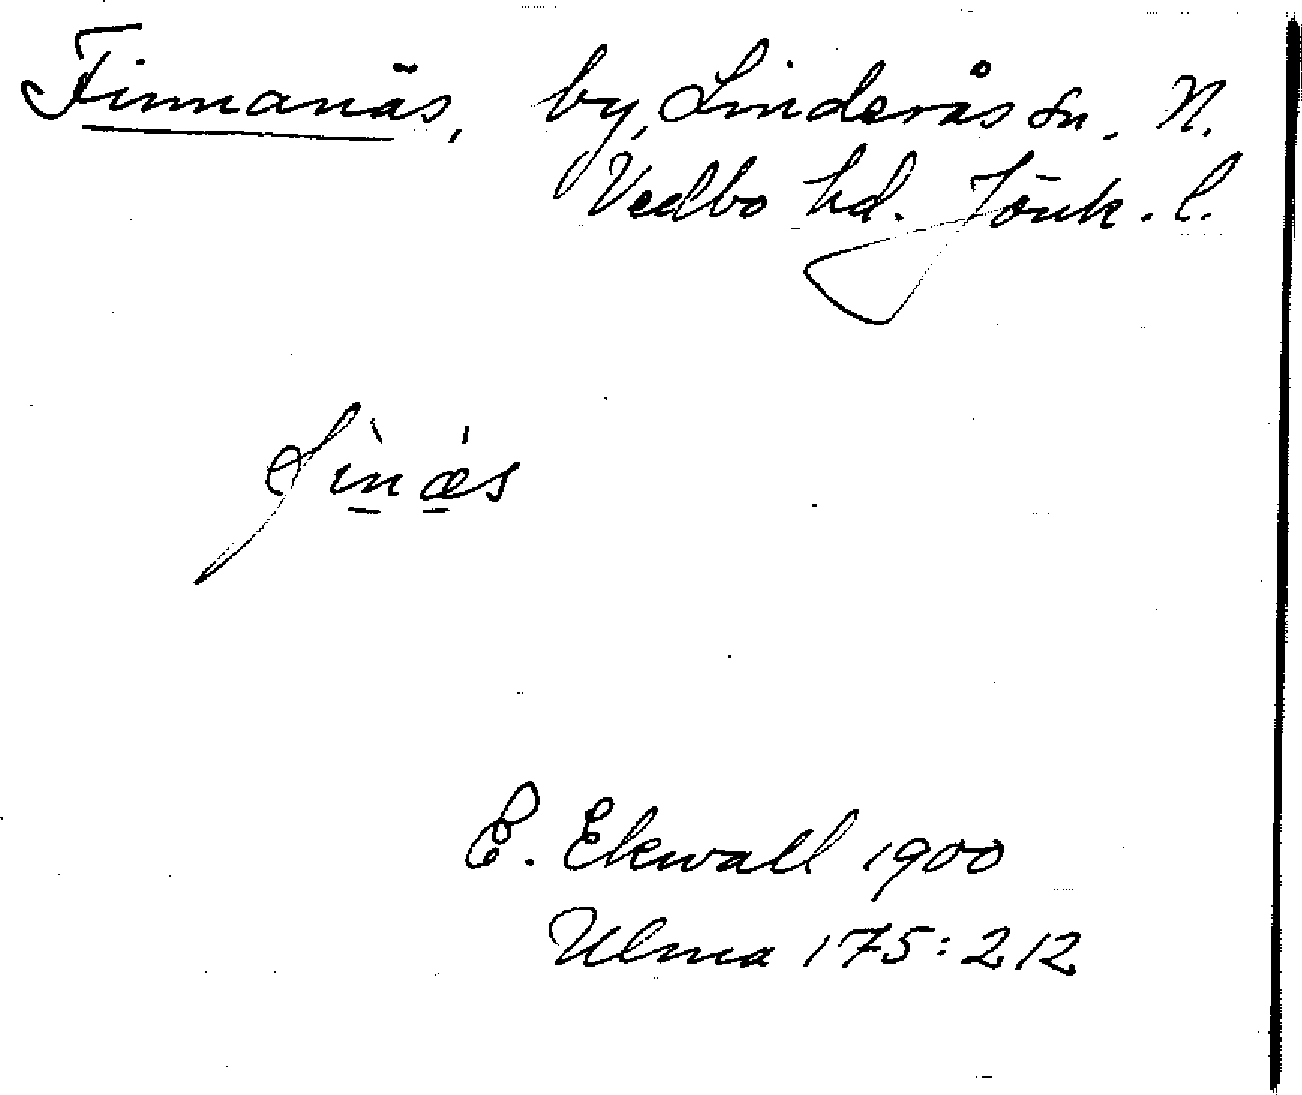 Finnanäs, by, Linderås sn. N.
Vedbo hd. Jönk. l.
fìn̲ǽ̲s
E. Ekwall 1900
Ulma 175:212